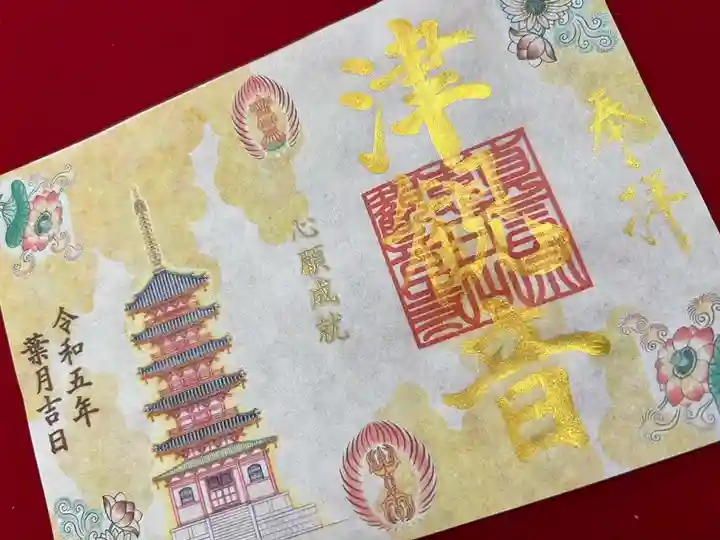 奉拝
津観音
心願成就
令和五年
葉月吉日